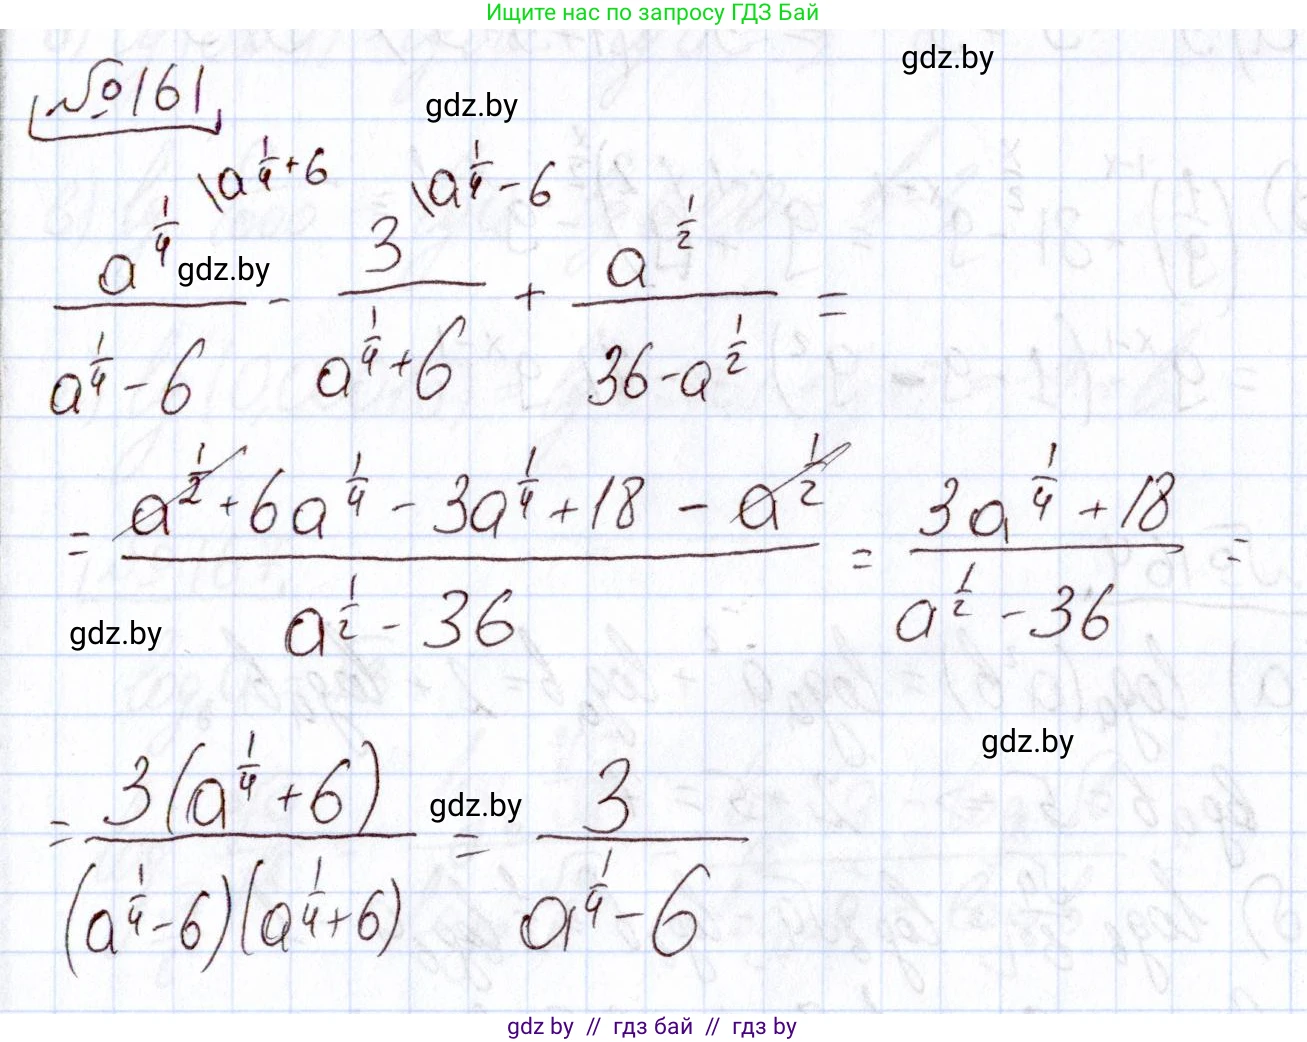 Ищите нас по запросу ГДЗ Бай
gdz.by
№161
gdz.by
\a^{1/4}+6 \a^{1/4}-6
a^{1/4}/(a^{1/4}-6) - 3/(a^{1/4}+6) + a^{1/2}/(36-a^{1/2}) =
gdz.by
= (a^{1/2}+6a^{1/4}-3a^{1/4}+18-a^{1/2})/(a^{1/2}-36) = (3a^{1/4}+18)/(a^{1/2}-36) =
gdz.by
gdz.by
= 3(a^{1/4}+6)/((a^{1/4}-6)(a^{1/4}+6)) = 3/(a^{1/4}-6)
gdz.by
gdz by // гдз бай // гдз by